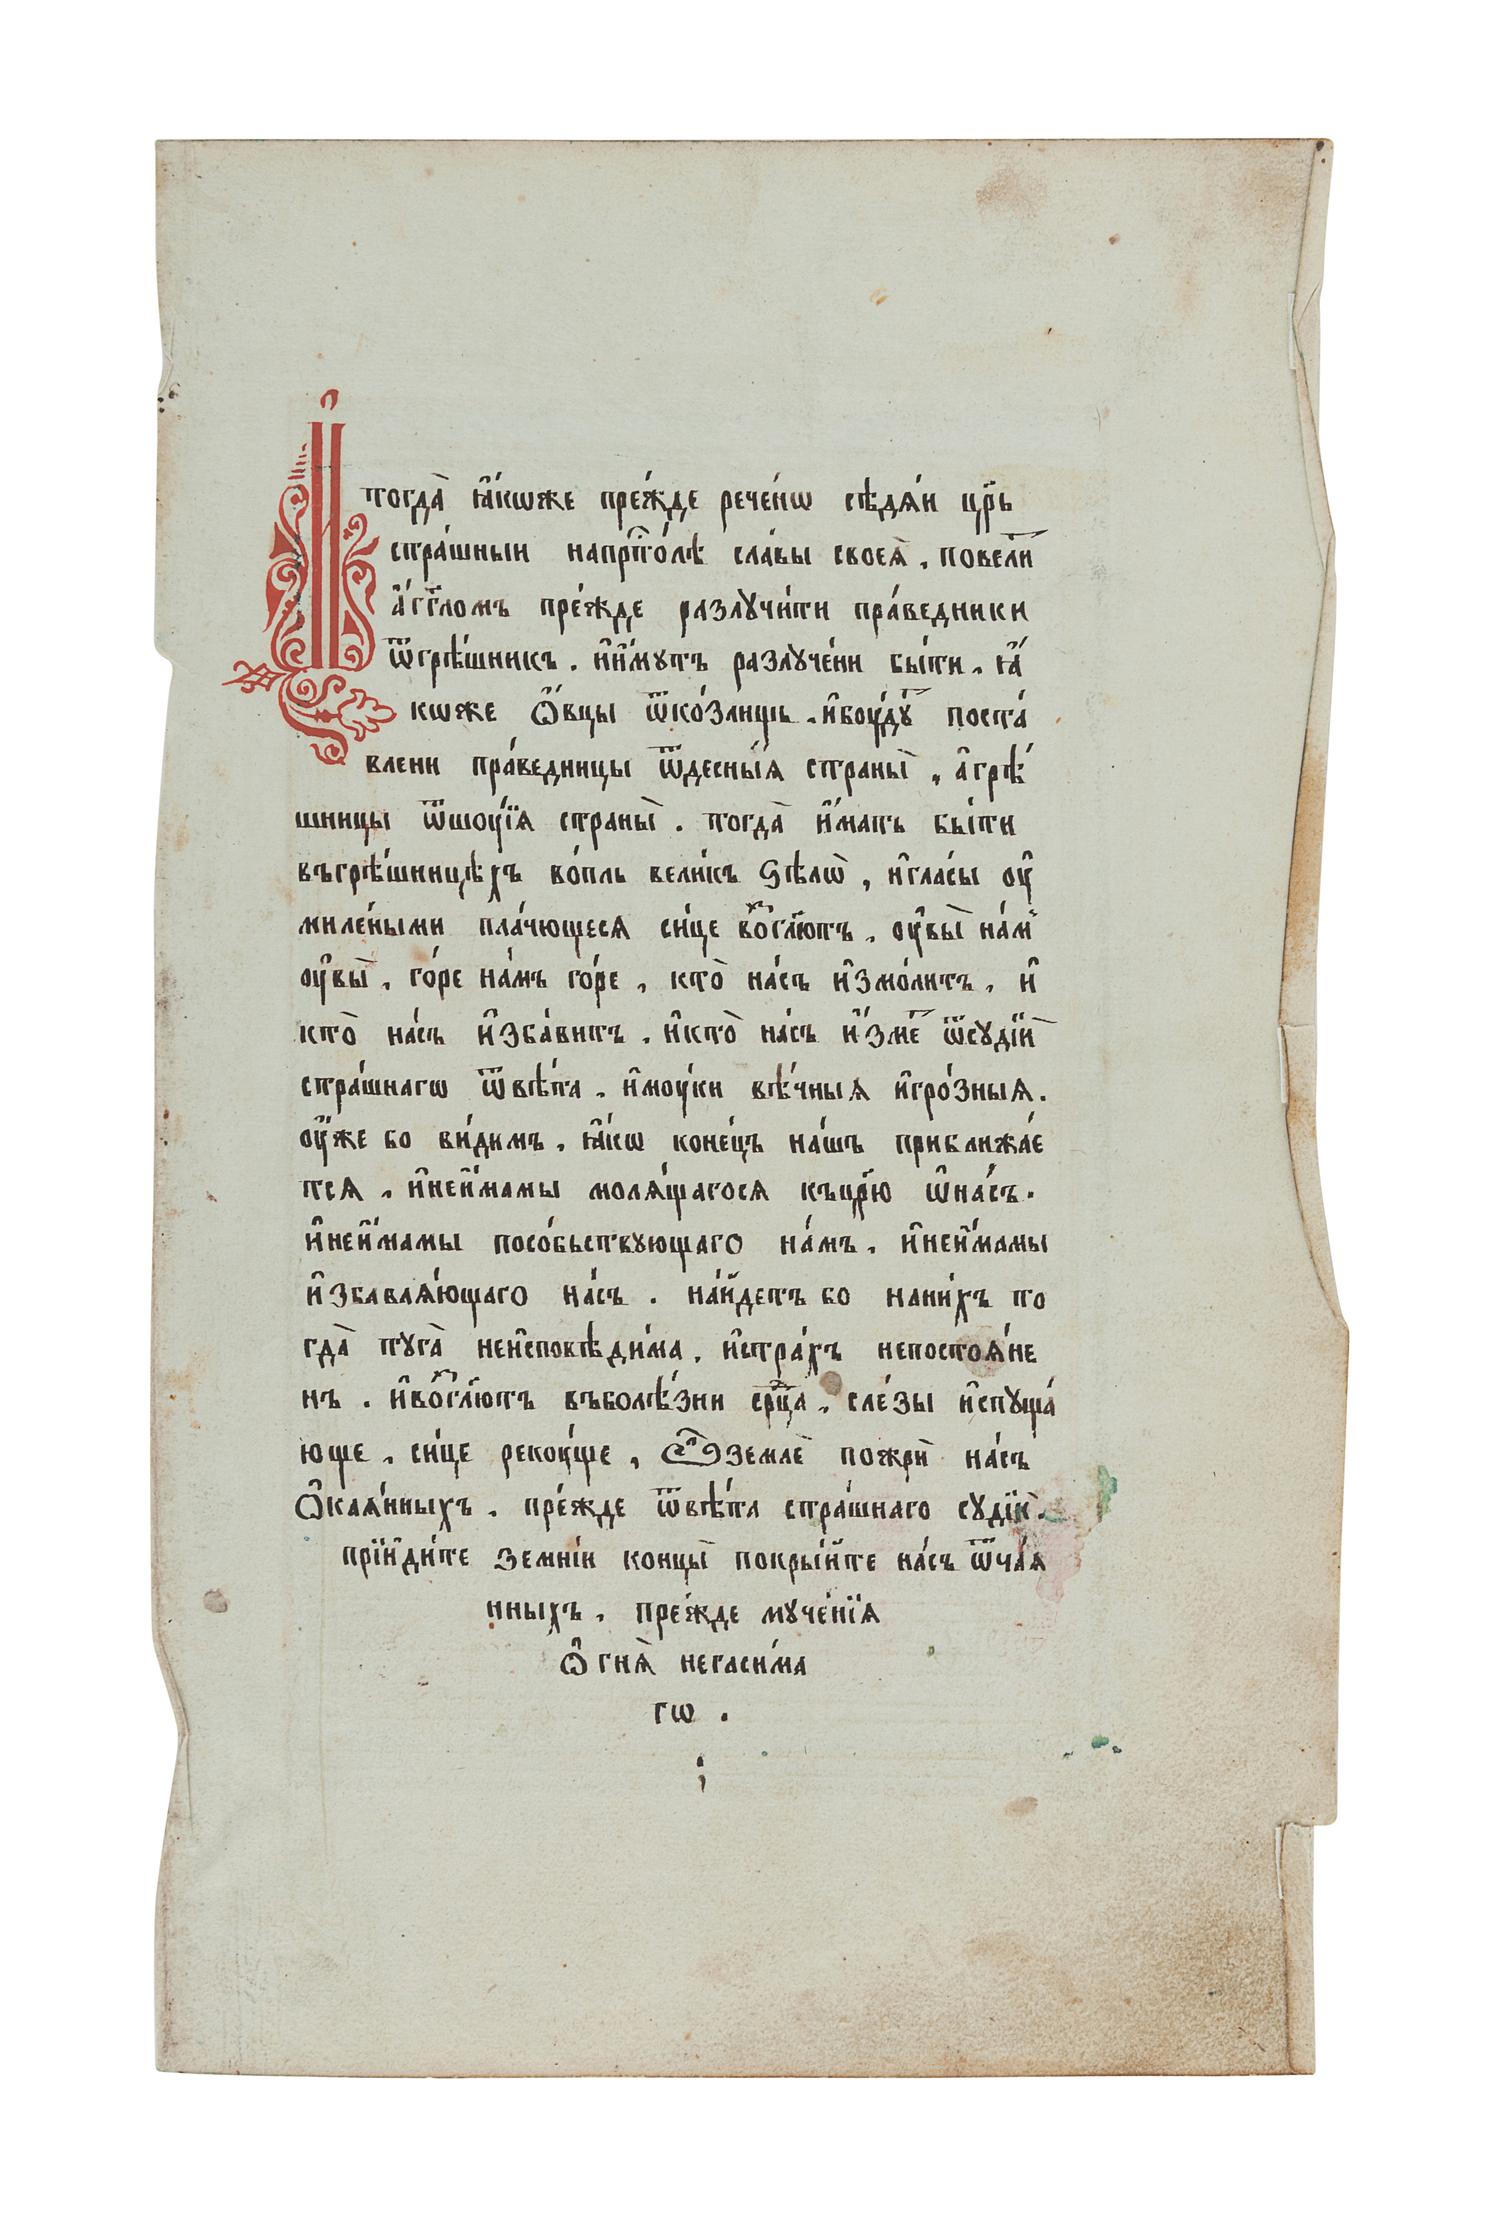 І҆ тогда̀ ꙗ҆́кѡже пре́жде рече́нѡ сѣдѧ́и цр҃ь
стра́шныи напрⷭ҇то́лѣ сла́вы своеѧ̀, повелитъ
а҆́гг҃ломъ пре́жде разлꙋчи́ти пра́ведники
ѿгрѣ́шникъ. и҆и҆́мꙋтъ разлꙋче́ни бы́ти. ꙗ҆́
кѡже ѻ҆́вцы ѿко́злищь. и҆боу́дꙋт поста́
влени пра́ведницы ѿдесны́ѧ страны̀, а҆грѣ́
шницы ѿшоу́їѧ страны̀. тогда̀ и҆́мать бы́ти
въгрѣ́шницѣхъ во́пль вели́къ ѕѣлѡ̀, и҆гла́сы оу҆
миле́ными пла́чющесѧ си́це возгл҃ютъ. оу҆вы̀ на́м
оу҆вы̀, го́ре на́мъ го́ре, кто̀ на́съ и҆змо́литъ. и҆
кто̀ на́съ и҆зба́витъ. и҆кто̀ на́съ и҆́зметъ ѿсꙋдїѝ
стра́шнагѡ ѿвѣ́та. и҆моу́ки вѣ́чныѧ и҆гро́зныѧ.
оу҆́же бо ви́димъ, ꙗ҆́кѡ коне́цъ на́шъ приближа́е
тсѧ, и҆неи҆́мамы молѧ́щагосѧ къцр҃ю̀ ѡ҆на́съ.
и҆неи҆́мамы посо́бьствꙋющаго на́мъ. и҆неи҆́мамы
и҆збавлѧ́ющаго на́съ. на́йдетъ бо нани́хъ то
гда̀ тꙋга̀ неи҆сповѣди́ма. и҆стра́хъ непостоѧ́не
нъ. и҆возгл҃ютъ въболѣ́зни срⷣца, сле́зы и҆спꙋща́
юще. си́це рекоу́ще, Ѽземлѐ пожрѝ на́съ
ѻ҆каѧ́нныхъ. пре́жде ѿвѣ́та стра́шнаго сꙋдїѝ.
прїиди́те земні́и концы̀ покры́йте на́съ ѿча́ѧ
нныхъ. пре́жде мꙋче́нїѧ
ѻ҆гнѧ̀ негаси́ма
гѡ.
;